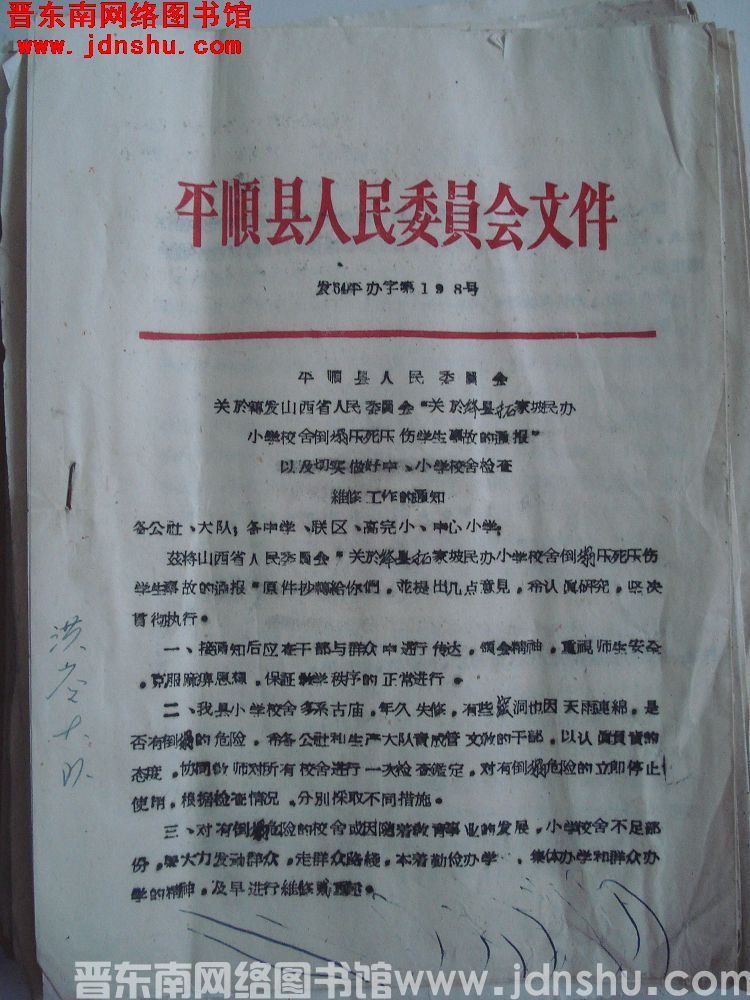 晋东南网络图书馆
www.jdnshu.com
平順县人民委員会文件
发64平办字第198号
平順县人民委員会
关於轉发山西省人民委員会“关於絳县拓家坡民办
小学校舍倒塌压死压伤学生事故的通报”
以及切实做好中、小学校舍检查
維修工作的通知
各公社、大队；各中学、联区、高完小、中心小学：
茲将山西省人民委員会“关於絳县拓家坡民办小学校舍倒塌压死压伤
学生事故的通报”原件抄轉給你們，並提出几点意見，希认眞研究，坚决
貫彻执行。
一、接通知后应在干部与群众中进行传达，領会精神，重視师生安全
，克服麻痹思想，保証教学秩序的正常进行。
二、我县小学校舍多系古庙，年久失修，有些窰洞也因天雨連綿，是
否有倒塌的危险，希各公社和生产大队責成管文敎的干部，以认眞負責的
态度，协同敎师对所有校舍进行一次检查鉴定，对有倒塌危险的立即停止
使用，根据检查情况，分别採取不同措施。
三、对有倒塌危险的校舍或因随着敎育事业的发展，小学校舍不足部
份，要大力发动群众，走群众路綫，本着勤俭办学、集体办学和群众办
学的精神，及早进行維修或重建。
洪岺大队
晋东南网络图书馆www.jdnshu.com